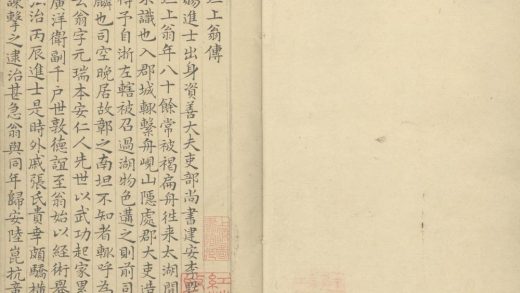 上翁傳
賜進士出身資善大夫吏部尚書建安李默
上翁年八十餘常被褐扁舟往來太湖間
求識也入郡城輒繫舟峴山隱處郡大吏造
得予自浙左轄被召過湖物色遘之則前司
麟也司空晚居故鄣之南坦不知者輒呼為
公翁字元瑞本安仁人先世以武功起家累
廣洋衛副千戶世敦德誼至翁始以經術舉
治丙辰進士是時外戚張氏貴幸頗驕橫
諫擊之逮治甚急翁與同年歸安陸崑抗章